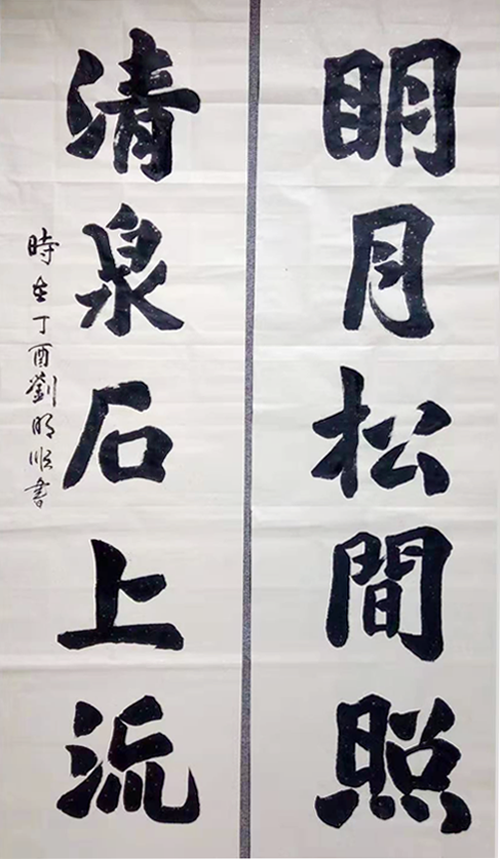 明月松間照
清泉石上流
時在丁酉劉明順書